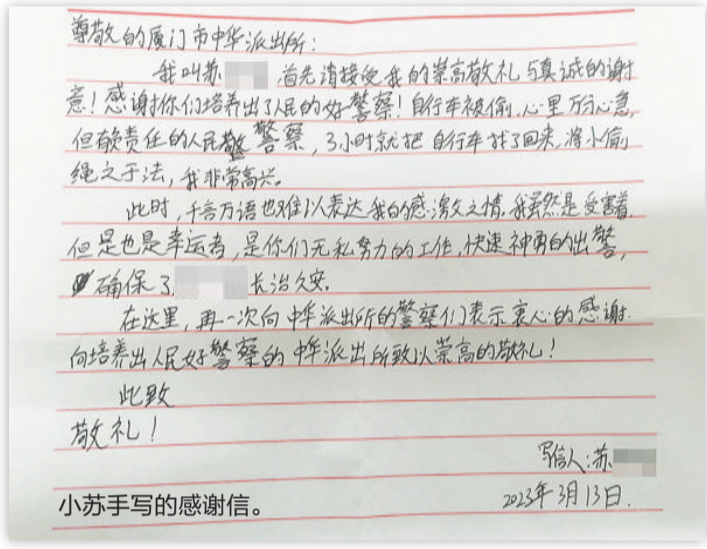 尊敬的厦门市中华派出所：
我叫苏 首先请接受我的崇高敬礼与真诚的谢
意！感谢你们培养出了人民的好警察！自行车被偷，心里万分心急，
但有责任的人民警察，3小时就把自行车找了回来，将小偷
绳之于法，我非常高兴。
此时，千言万语也难以表达我的感激之情。我虽然是受害着，
但是也是幸运者，是你们无私努力的工作，快速神勇的出警，
确保了 长治久安。
在这里，再一次向中华派出所的警察们表示衷心的感谢.
向培养出人民好警察的中华派出所致以崇高的敬礼！
此致
敬礼！
写信人：苏
2023年3月13日.
小苏手写的感谢信。